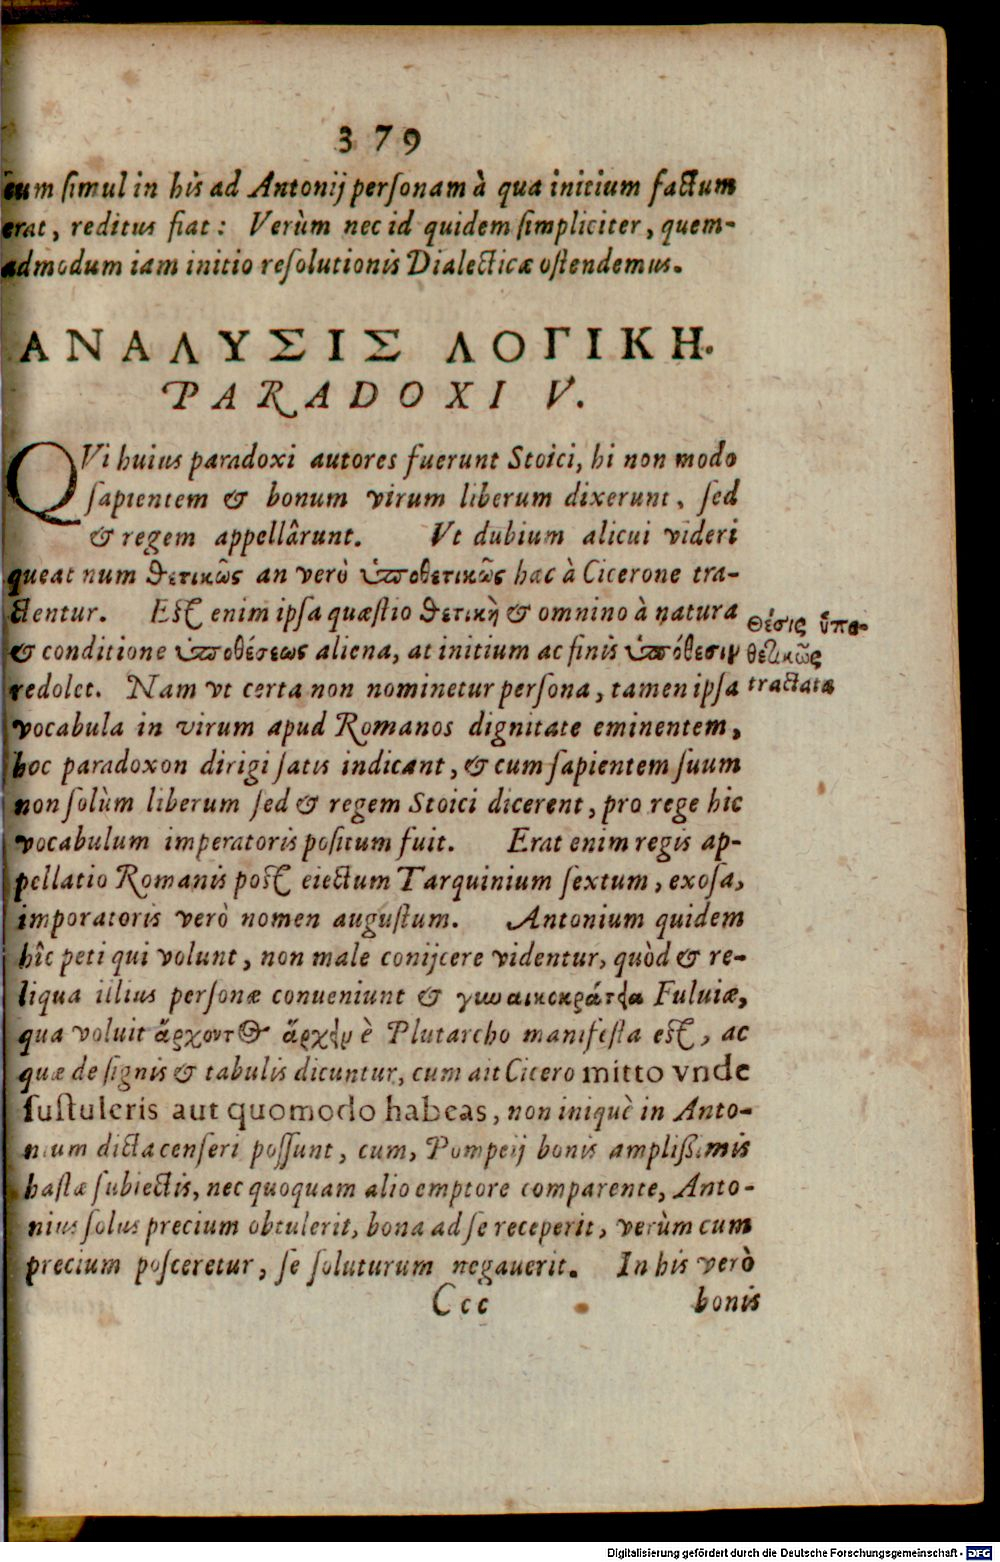 379
cum simul in his ad Antonij personam à qua initium factum
erat, reditus fiat: Verùm nec id quidem simpliciter, quem-
admodum iam initio resolutionis Dialecticæ ostendemus.
ΑΝΑΛΥΣΙΣ ΛΟΓΙΚΗ.
PARADOXI V.
QVi huius paradoxi autores fuerunt Stoici, hi non modo
sapientem & bonum virum liberum dixerunt, sed
& regem appellârunt. Vt dubium alicui videri
queat num θετικῶς an verò ὑποθετικῶς hac à Cicerone tra-
ctentur. Est enim ipsa quæstio θετικὴ & omnino à natura
& conditione ὑποθέσεως aliena, at initium ac finis ὑπόθεσιν
redolet. Nam vt certa non nominetur persona, tamen ipsa
θέσις ὑπο-
θετικῶς
tractata
vocabula in virum apud Romanos dignitate eminentem,
hoc paradoxon dirigi satis indicant, & cum sapientem suum
non solùm liberum sed & regem Stoici dicerent, pro rege hic
vocabulum imperatoris positum fuit. Erat enim regis ap-
pellatio Romanis post eiectum Tarquinium sextum, exosa,
imporatoris verò nomen augustum. Antonium quidem
hîc peti qui volunt, non male conijcere videntur, quòd & re-
liqua illius personæ conueniunt & γυναικοκράτεια Fuluiæ,
qua voluit ἄρχοντος ἄρχειν è Plutarcho manifesta est, ac
quæ de signis & tabulis dicuntur, cum ait Cicero mitto vnde
sustuleris aut quomodo habeas, non iniquè in Anto-
nium dicta censeri possunt, cum, Pompeij bonis amplißimis
hastæ subiectis, nec quoquam alio emptore comparente, Anto-
nius solus precium obtulerit, bona ad se receperit, verùm cum
precium posceretur, se soluturum negauerit. In his verò
Ccc bonis
Digitalisierung gefördert durch die Deutsche Forschungsgemeinschaft - DFG